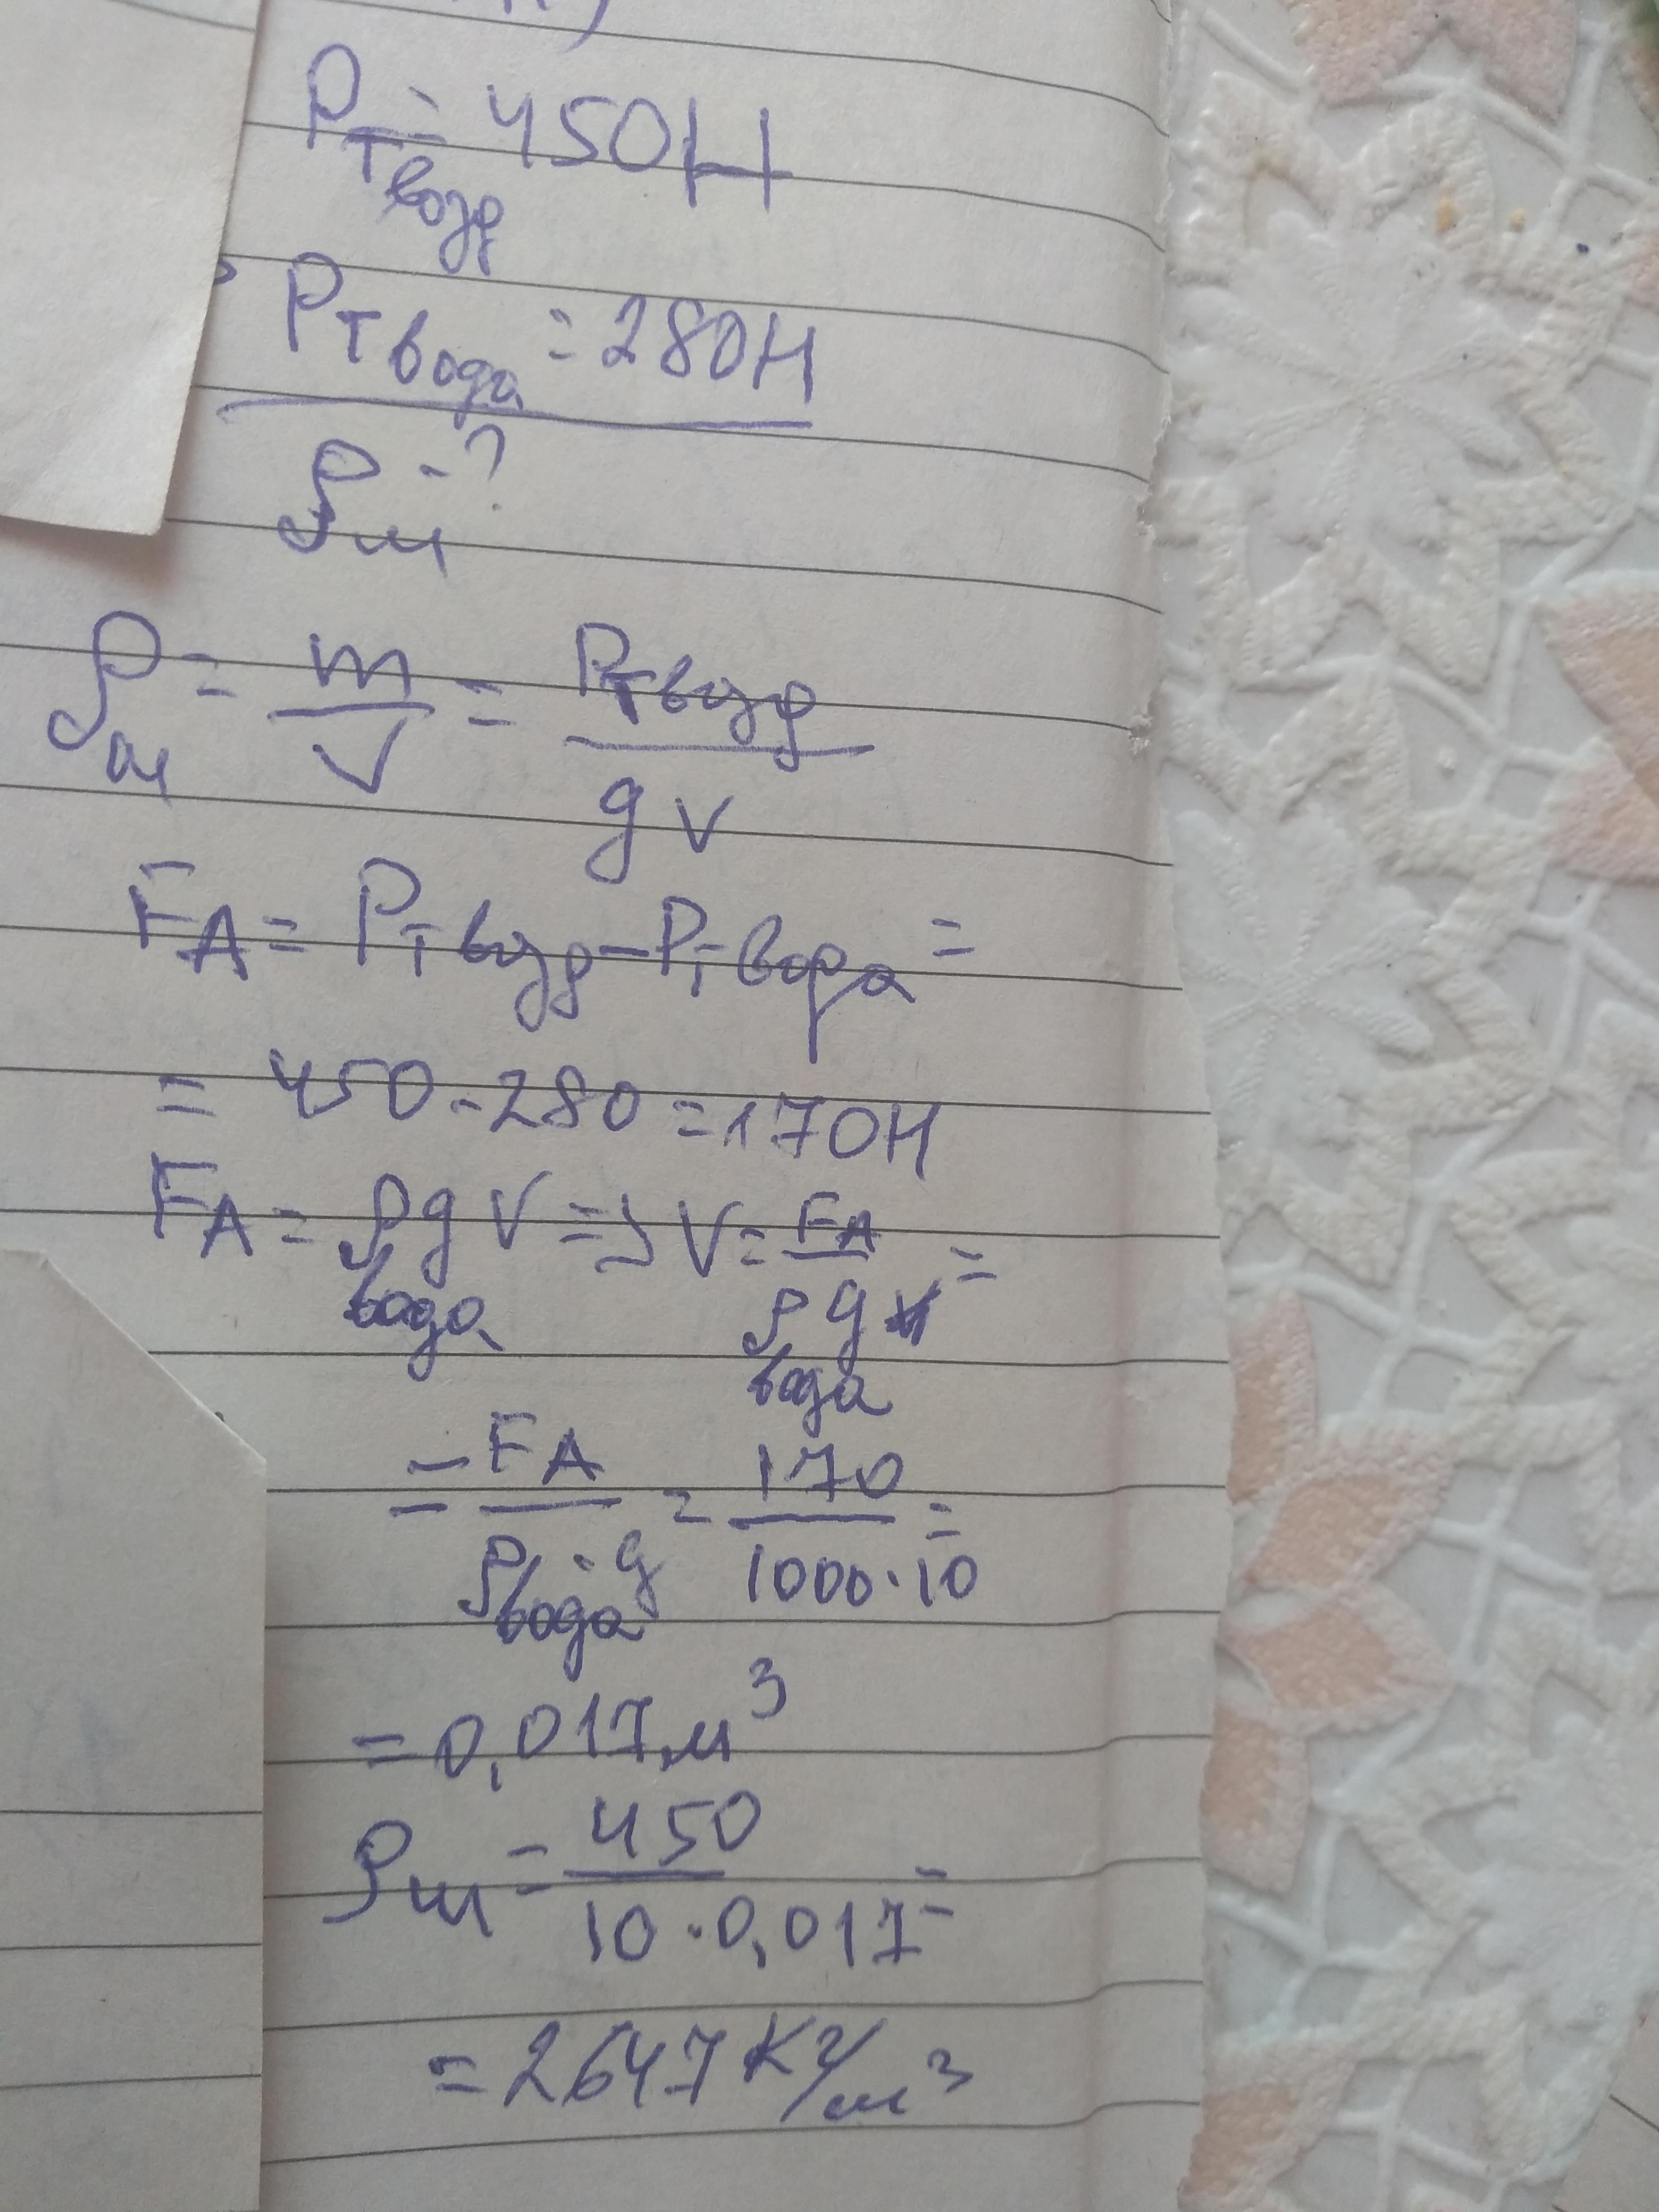 Pт возд = 450Н
Pт вода = 280Н
ρм - ?
ρм = m/V = Pт возд/gV
FA = Pт возд - Pт вода =
= 450 - 280 = 170Н
FA = ρ вода gV => V = FA/ρ вода g =
= FA/ρ вода · g = 170/1000·10 =
= 0,017м³
ρм = 450/10·0,017 =
= 2647 кг/м³